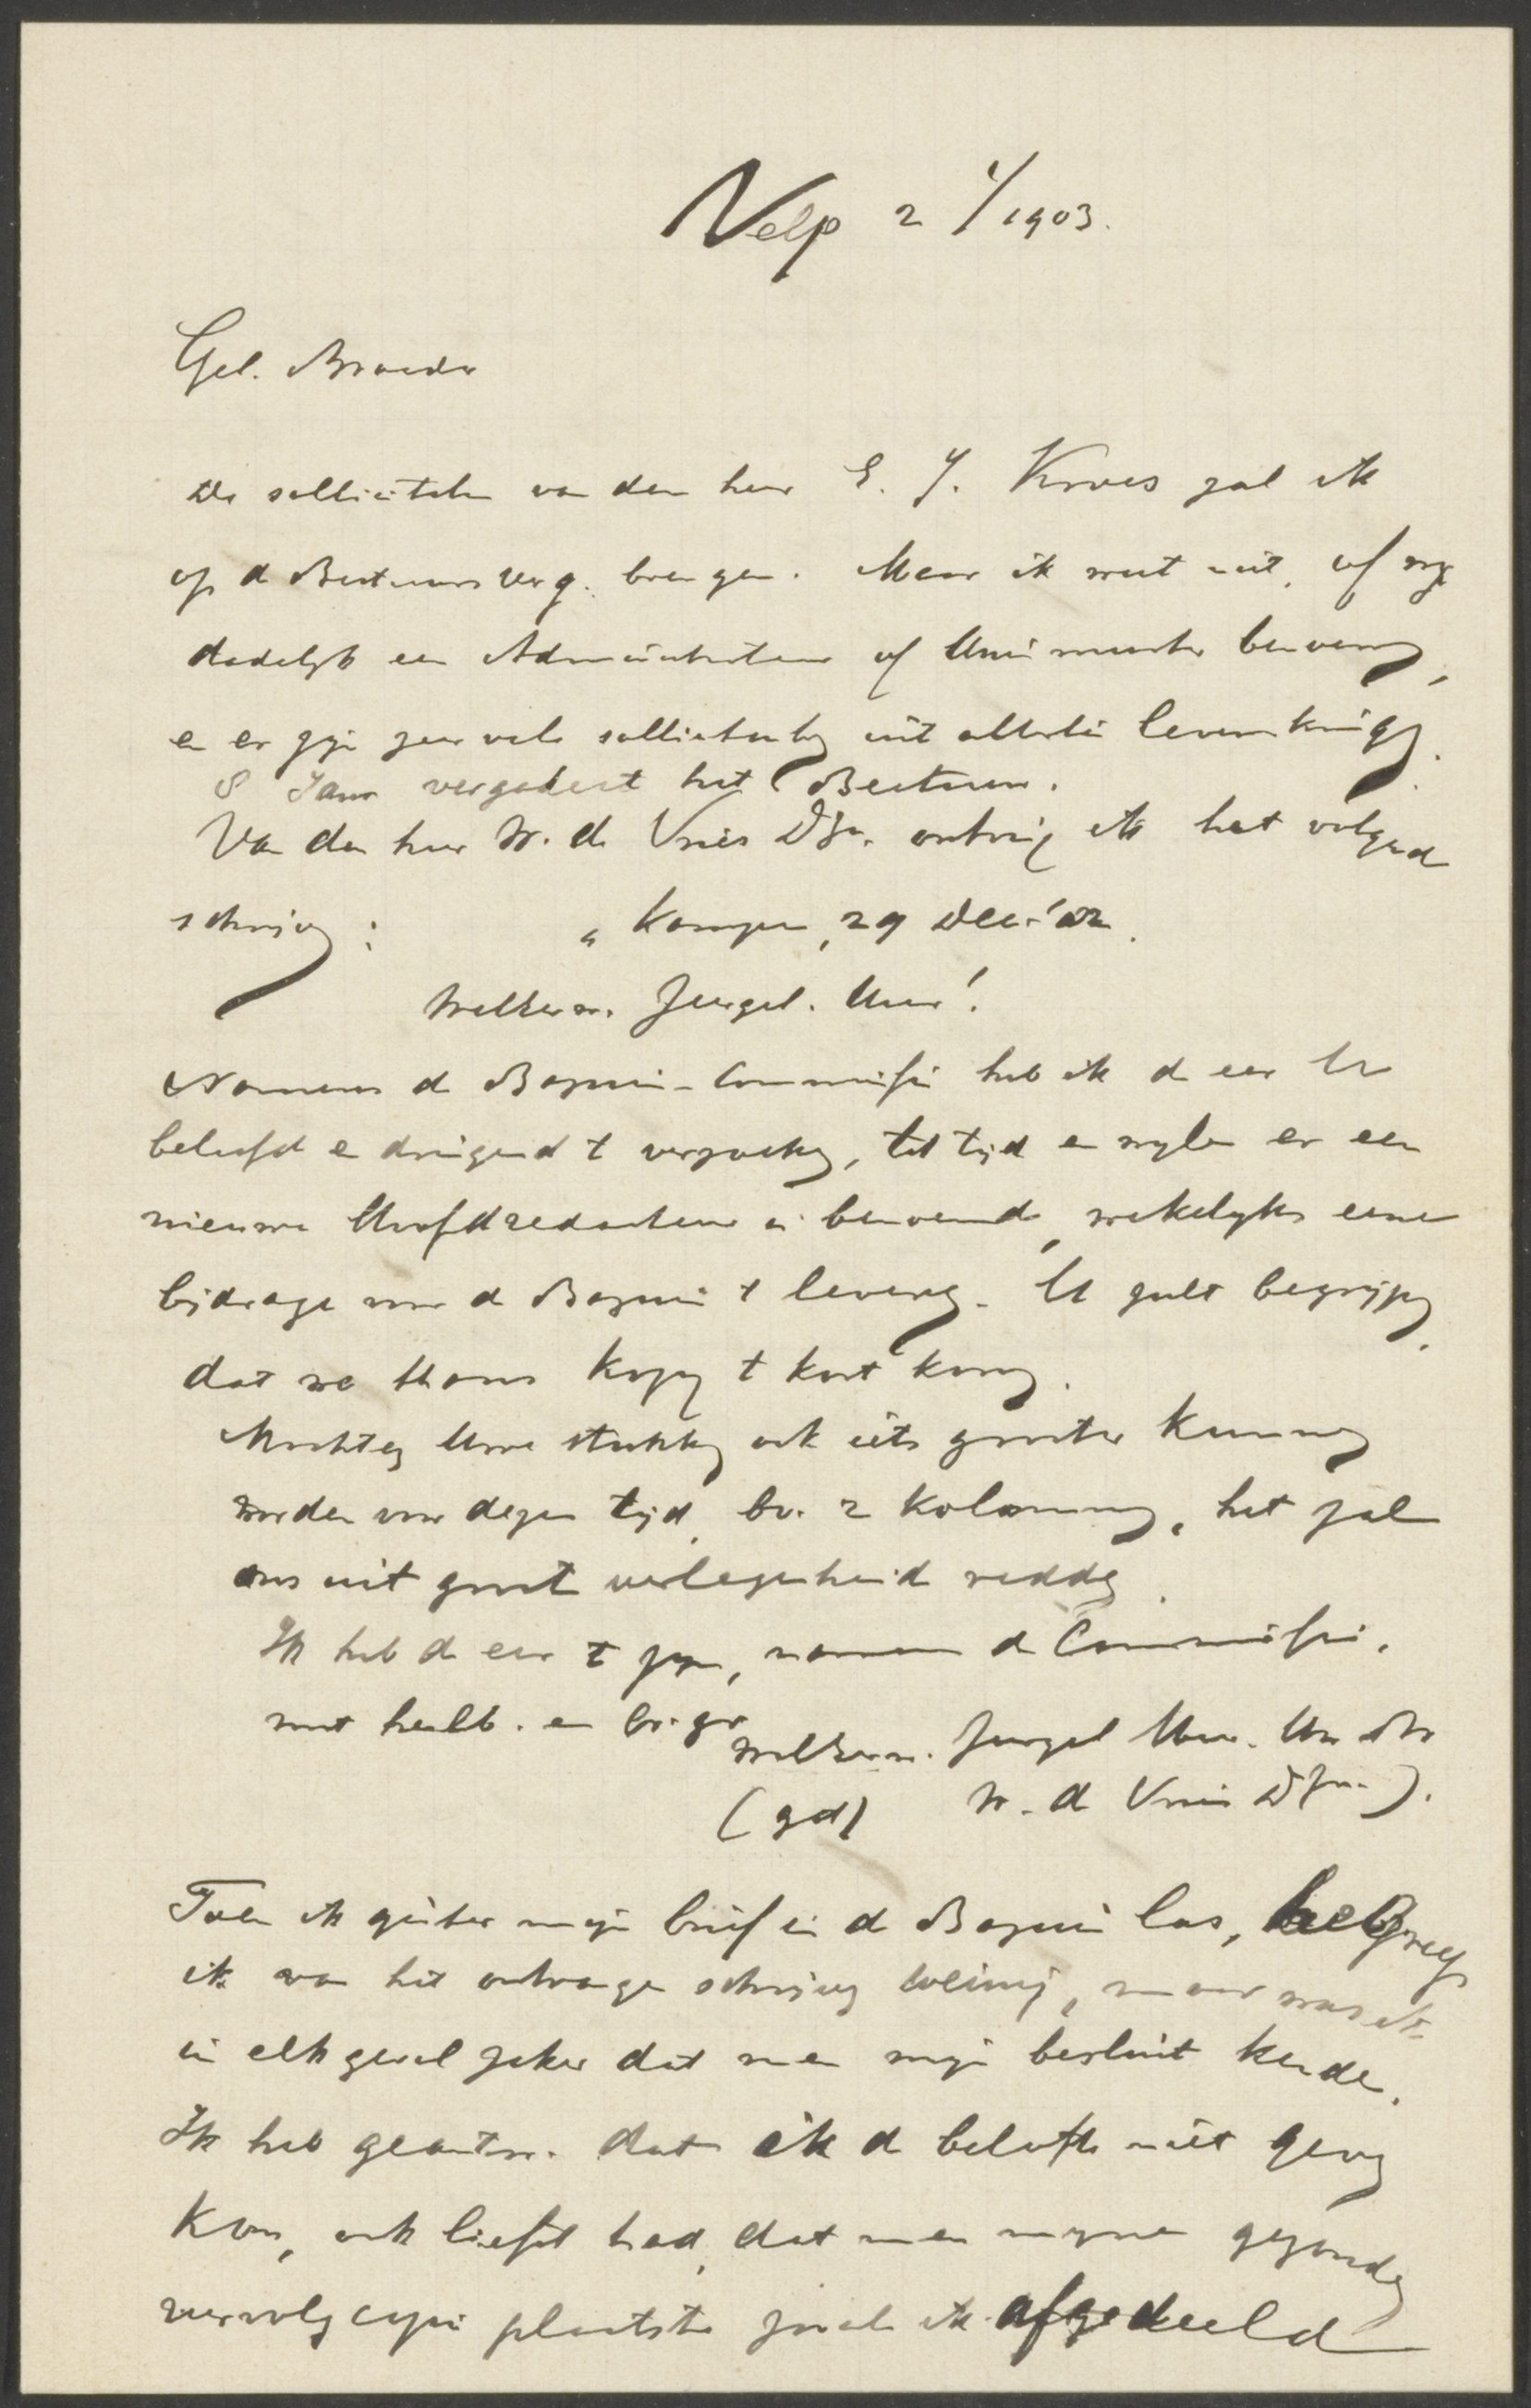 Velp 2 1/1903.
Gel. Broeder
De sollicitatie van den heer E. J. Kroes zal ik
op de Bestuursverg. brengen. Maar ik weet niet, of wy
dadelyk een Administrateur of Huismeester benoemen,
en er zyn zeer vele sollicitanten uit allerlei levenskringen.
8 Janr vergadert het Bestuur.
Van den heer W. de Vries Dzn. ontving ik het volgend
schrijven:
„Kampen, 29 Dec. '02.
WelEerw. Zeergel. Heer!
Namens de Bazuin-Commissie heb ik de eer U
beleefd en dringend te verzoeken, tot tijd en wylen er een
nieuwe Hoofdredacteur is benoemd, wekelyks eene
bijdrage voor de Bazuin te leveren. U zult begrijpen,
dat we thans kopy te kort komen.
Mochten Uwe stukken ook iets grooter kunnen
worden voor dezen tijd, bv. 2 kolommen, het zal
ons uit groote verlegenheid redden.
Ik heb de eer te zyn, namens de Commissie,
met heilb. en br. gr.
WelEerw. Zeergel Heer. Uw Dr
(gd) W. de Vries Dzn.).
Toen ik gister mijn brief in de Bazuin las, begreep
ik van het ontvangen schrijven weinig, maar was ik
in elk geval zeker dat men mijn besluit kende.
Ik heb geantw. dat ik de belofte niet geven
kon, ook liefst had, dat men myne gezonden
vervolg copie plaatste zooals ik afgedeeld